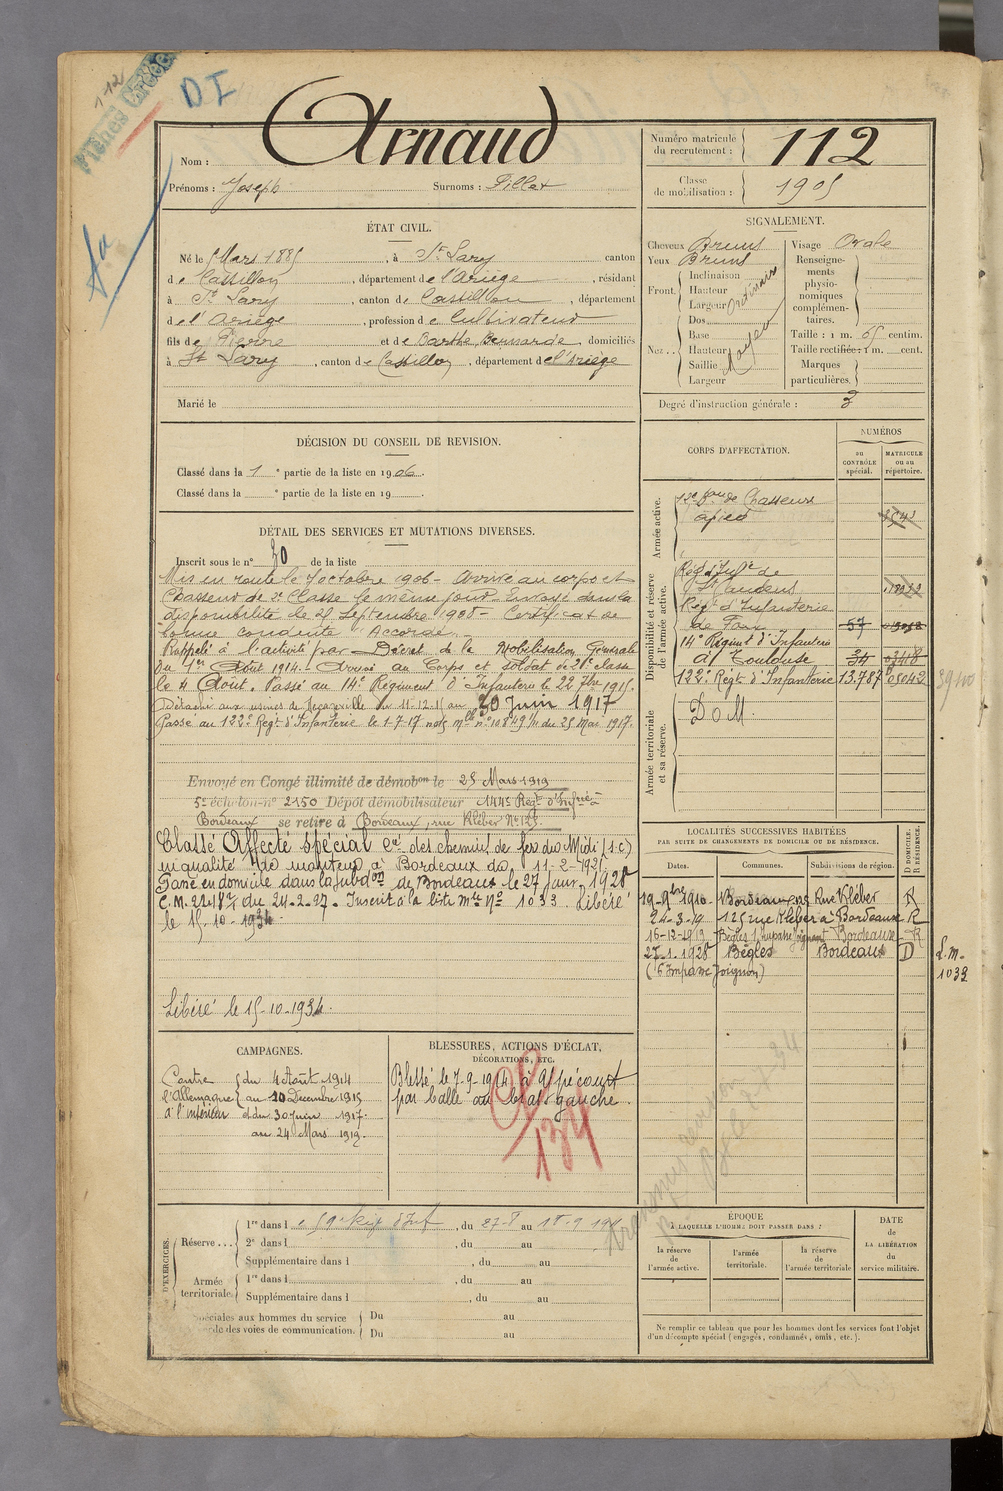 112
Fiches
D I
Nom : Arnaud
Prénoms : Joseph Surnoms : Pillat
Numéro matricule du recrutement : 112
Classe de mobilisation : 1905
ÉTAT CIVIL.
Né le 5 Mars 1885, à St Lary canton
de Castillon, département de l'Ariège, résidant
à St Lary, canton de Castillon, département
de l'Ariège, profession de Cultivateur
fils de Pierre et de Barthe Bernarde domiciliés
à St Lary, canton de Castillon, département de l'Ariège
Marié le
SIGNALEMENT.
Cheveux Bruns
Yeux Bruns
Front. Inclinaison
Hauteur
Largeur
Ordinaire
Nez .. Dos
Base
Hauteur
Saillie
Largeur
Moyen
Visage Ovale
Renseignements physionomiques complémentaires.
Taille : 1 m. 65 centim.
Taille rectifiée : 1 m. cent.
Marques particulières.
Degré d'instruction générale : 3
DÉCISION DU CONSEIL DE REVISION.
Classé dans la 1e partie de la liste en 1906.
Classé dans la e partie de la liste en 19
DÉTAIL DES SERVICES ET MUTATIONS DIVERSES.
Inscrit sous le n° 30 de la liste
Mis en route le 7 octobre 1906 - Arrivé au corps et
Chasseur de 2e Classe le même jour - Envoyé dans la
disponibilité le 25 Septembre 1908 - Certificat de
bonne conduite "Accordé".
Rappelé à l'activité par Décret de la Mobilisation Générale
du 1er Août 1914. Arrivé au Corps et soldat de 2e classe
le 4 Août. Passé au 14e Régiment d'Infanterie le 22 7bre 1915.
Détaché aux usines de Decazeville du 11-12-15 au 30 Juin 1917
Passé au 122e Régt d'Infanterie le 1-7-17
Envoyé en Congé illimité de démobon le 25 Mars 1919
5e échelon n° 2150 Dépôt démobilisateur 144e Régt d'Infrie à
Bordeaux se retire à Bordeaux, rue Kléber N° 125.
Classé Affecté spécial Cie des chemins de fer du Midi (s.c.)
en qualité de monteur à Bordeaux du 11-2-1921
Passé en domicile dans la subdon de Bordeaux le 27 Janv. 1928
Inscrit à la liste mle N° 1033. Libéré
le 15-10-1934
Libéré le 15-10-1934.
CORPS D'AFFECTATION.
NUMÉROS
au CONTRÔLE spécial.
MATRICULE ou au répertoire.
Armée active.
12e Bon de Chasseurs
à pied
Disponibilité et réserve de l'armée active.
Régt d'Infie de
St Gaudens
Régt d'Infanterie
de Foix 57
14e Régiment d'Infanterie
à Toulouse 34
122e Régt d'Infanterie 13.787 05042
39100
Armée territoriale et sa réserve.
D o M.
LOCALITÉS SUCCESSIVES HABITÉES
PAR SUITE DE CHANGEMENTS DE DOMICILE OU DE RÉSIDENCE.
Dates. Communes. Subdivisions de région. D DOMICILE. R RÉSIDENCE.
19-9bre 1910 Bordeaux 125 Rue Kléber R
24-3-19 125 rue Kléber à Bordeaux R
16-12-1919 Bègles Bordeaux R
27-1-1928 Bègles Bordeaux D
(6 Impasse Joignon)
L.m.
1033
CAMPAGNES.
Contre du 4 Août 1914
l'Allemagne au 10 Décembre 1915
à l'intérieur et du 30 Juin 1917
au 24 Mars 1919.
BLESSURES, ACTIONS D'ÉCLAT,
DÉCORATIONS, ETC.
Blessé le 7-9-1914 à Aspécourt
par balle au bras gauche.
134
D'EXERCICES.
Réserve ... 1re dans le 59e Régt d'Inf, du 27-8 au
2e dans l , du au
Supplémentaire dans l , du au
Armée territoriale. 1re dans l , du au
Supplémentaire dans l , du au
Spéciales aux hommes du service
garde des voies de communication. Du au
Du au
ÉPOQUE
À LAQUELLE L'HOMME DOIT PASSER DANS :
la réserve de l'armée active.
l'armée territoriale.
la réserve de l'armée territoriale
DATE
de
LA LIBÉRATION
du
service militaire.
Ne remplir ce tableau que pour les hommes dont les services font l'objet
d'un décompte spécial (engagés, condamnés, omis, etc.).